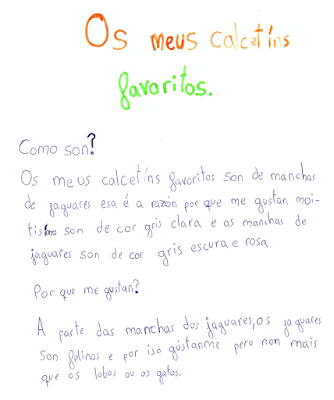 Os meus calcetíns
favoritos.
Como son?
Os meus calcetíns favoritos son de manchas
de jaguares esa é a razón por que me gustan moi-
tismo son de cor gris clara e as manchas de
jaguares son de cor gris escura e rosa
Por que me gustan?
A parte das manchas dos jaguares,os jaguares
son felinos e por iso gústanme pero non mais
que os lobos ou os gatos.